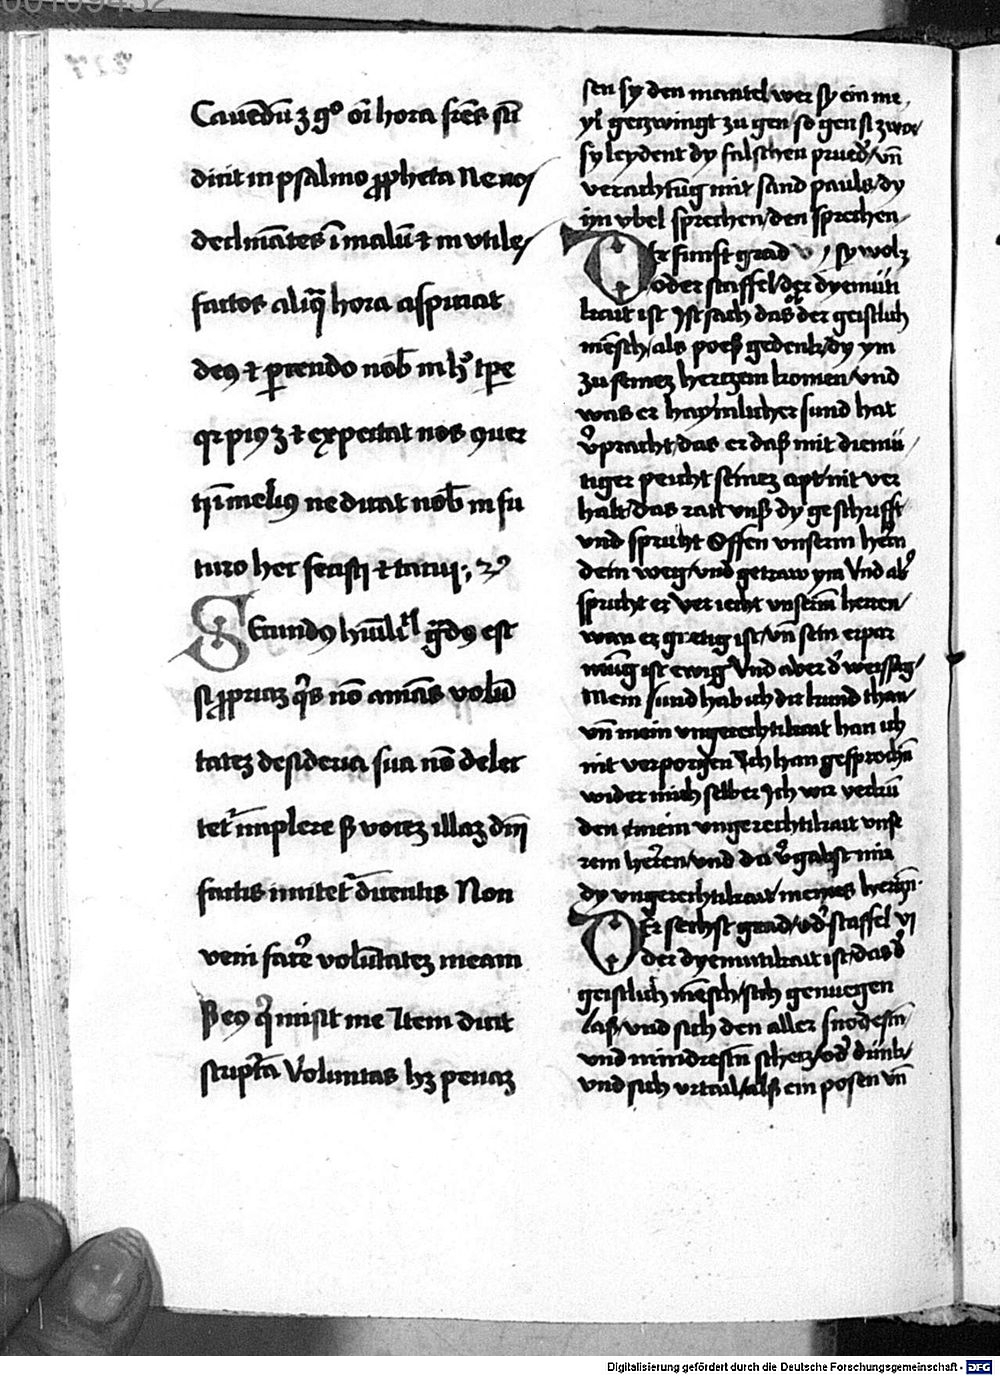 Cauēdū ʒ gͦ oī hora fr̄es sīc
dicit in psalmo ꝓpheta Ne nos
declinātes ī malū ⁊ inutiles
factos aliq̄ hora aspiciat
deꝰ ⁊ ꝑcendo nob̄ in hͦ tp̄e
qr piꝰ ʒ ⁊ expectat nos ꝯuer
ti ī meliꝰ ne dicat nob̄ in fu
turo hec fecisti ⁊ tacui
Secundꝰ hūilitatis ḡdꝰ est
si ꝓpriaʒ q̄s nō amās volū
tateʒ desideria sua nō delec
tet̄ implere sʒ voceʒ illaʒ dn̄i
factis imitet̄ dicentis Non
veni facēr volūtateʒ meam
sʒ eiꝰ q̄ misit me Item dicit
scriptūa Voluntas hʒ penaʒ
sen sy den mantel wer sy ein me
yl̄ geczwingt zu gen / so gen si zwo
sy leydent dy falschen prued̄ / vn̄
verachtūg mit sand pauls / dy
im vbel sprechen / den sprechen
Der funft grad v / sy wolʒ
oder staffel / der dyemüti
kait ist Ist sach das der geistlich
mēsch / als poeß gedenk / dy ym
zu seineʒ hertzem komen / vnd
was er haymlicher sund hat
v̄pracht / das er daß mit diemü
tiger peicht seineʒ apt nit ver
halt / das ratt vnß dy geschrifft
vnd spricht Offen vnserm herm
dein weg / vnd getraw ym Vnd ab̄
spricht er Ver iecht vnserm herren /
wan er gretig ist / vn̄ sein erpar
mūg ist ewig Vnd aber d̄ weissag /
Mein sund hab ich dir kund than /
vn̄ mein vngerechtikait han ich
nit verporgen Ich han gesprochn̄
wider mich selber Ich wir verkū
den mein vngerechtikait vnse
rem herren / vnd du v̄gabst mir
dy vngerechtikait / meines herczn̄
Der sechst grad / od̄ staffel vj
der dyemutikait ist / das d̄
geistlich mēsch / sich genuegen
laß / vnd sich den aller snodestn̄ /
vnd mindrestn̄ schecz / od̄ dunk /
vnd sich vrtail / alß ein posen vn̄
Digitalisierung gefördert durch die Deutsche Forschungsgemeinschaft - DFG